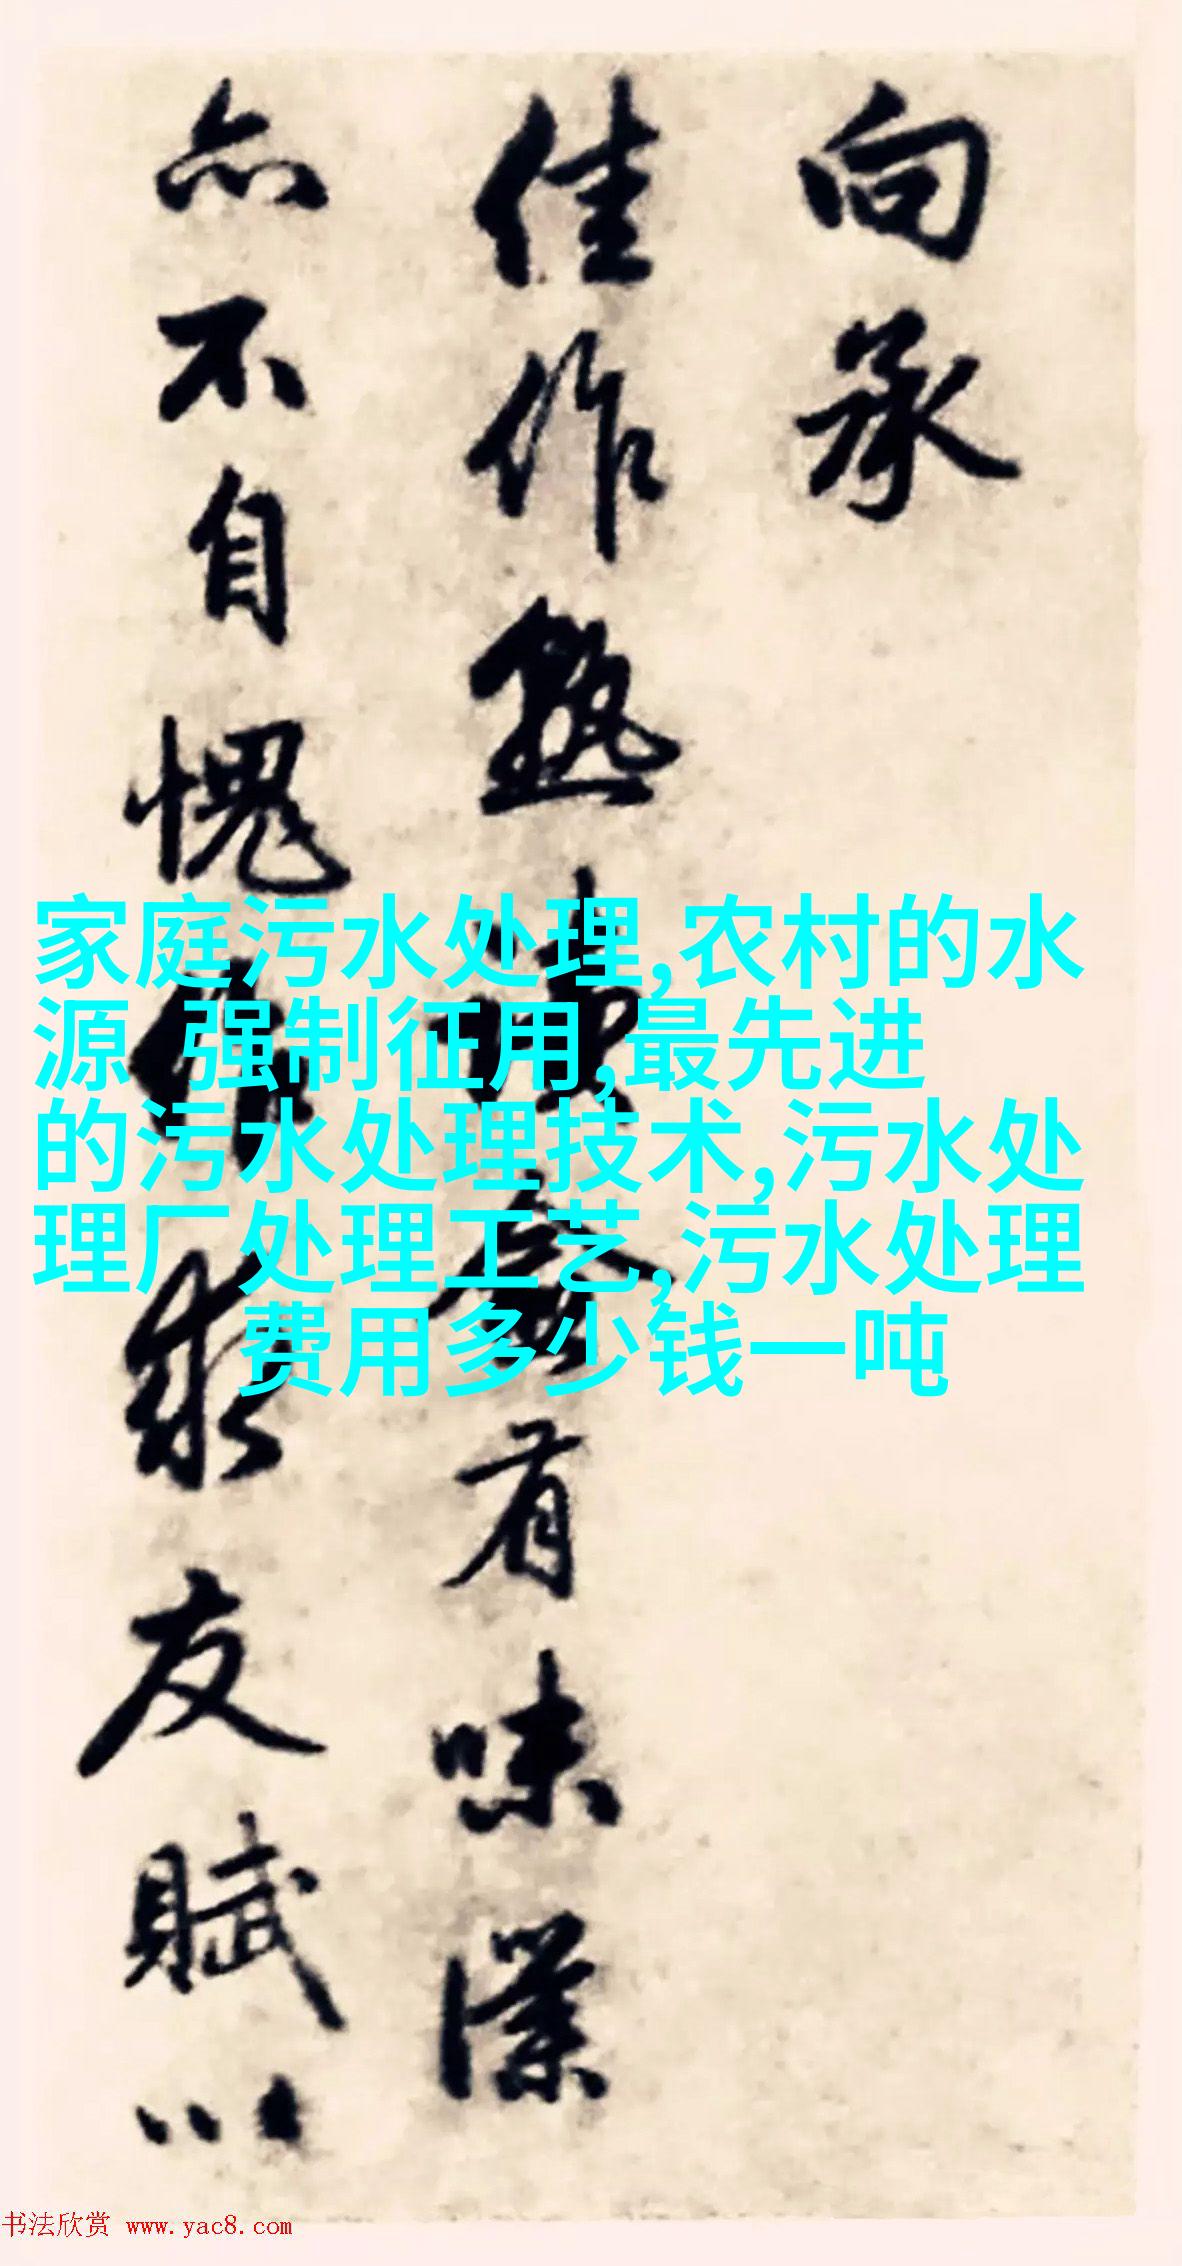 向承
佳作熟有味僕
亦不自愧作求友賦以
家庭污水处理,农村的水
源 强制征用,最先进
的污水处理技术,污水处
理厂处理工艺,污水处理
费用多少钱一吨
书法欣赏 www.yac8.com